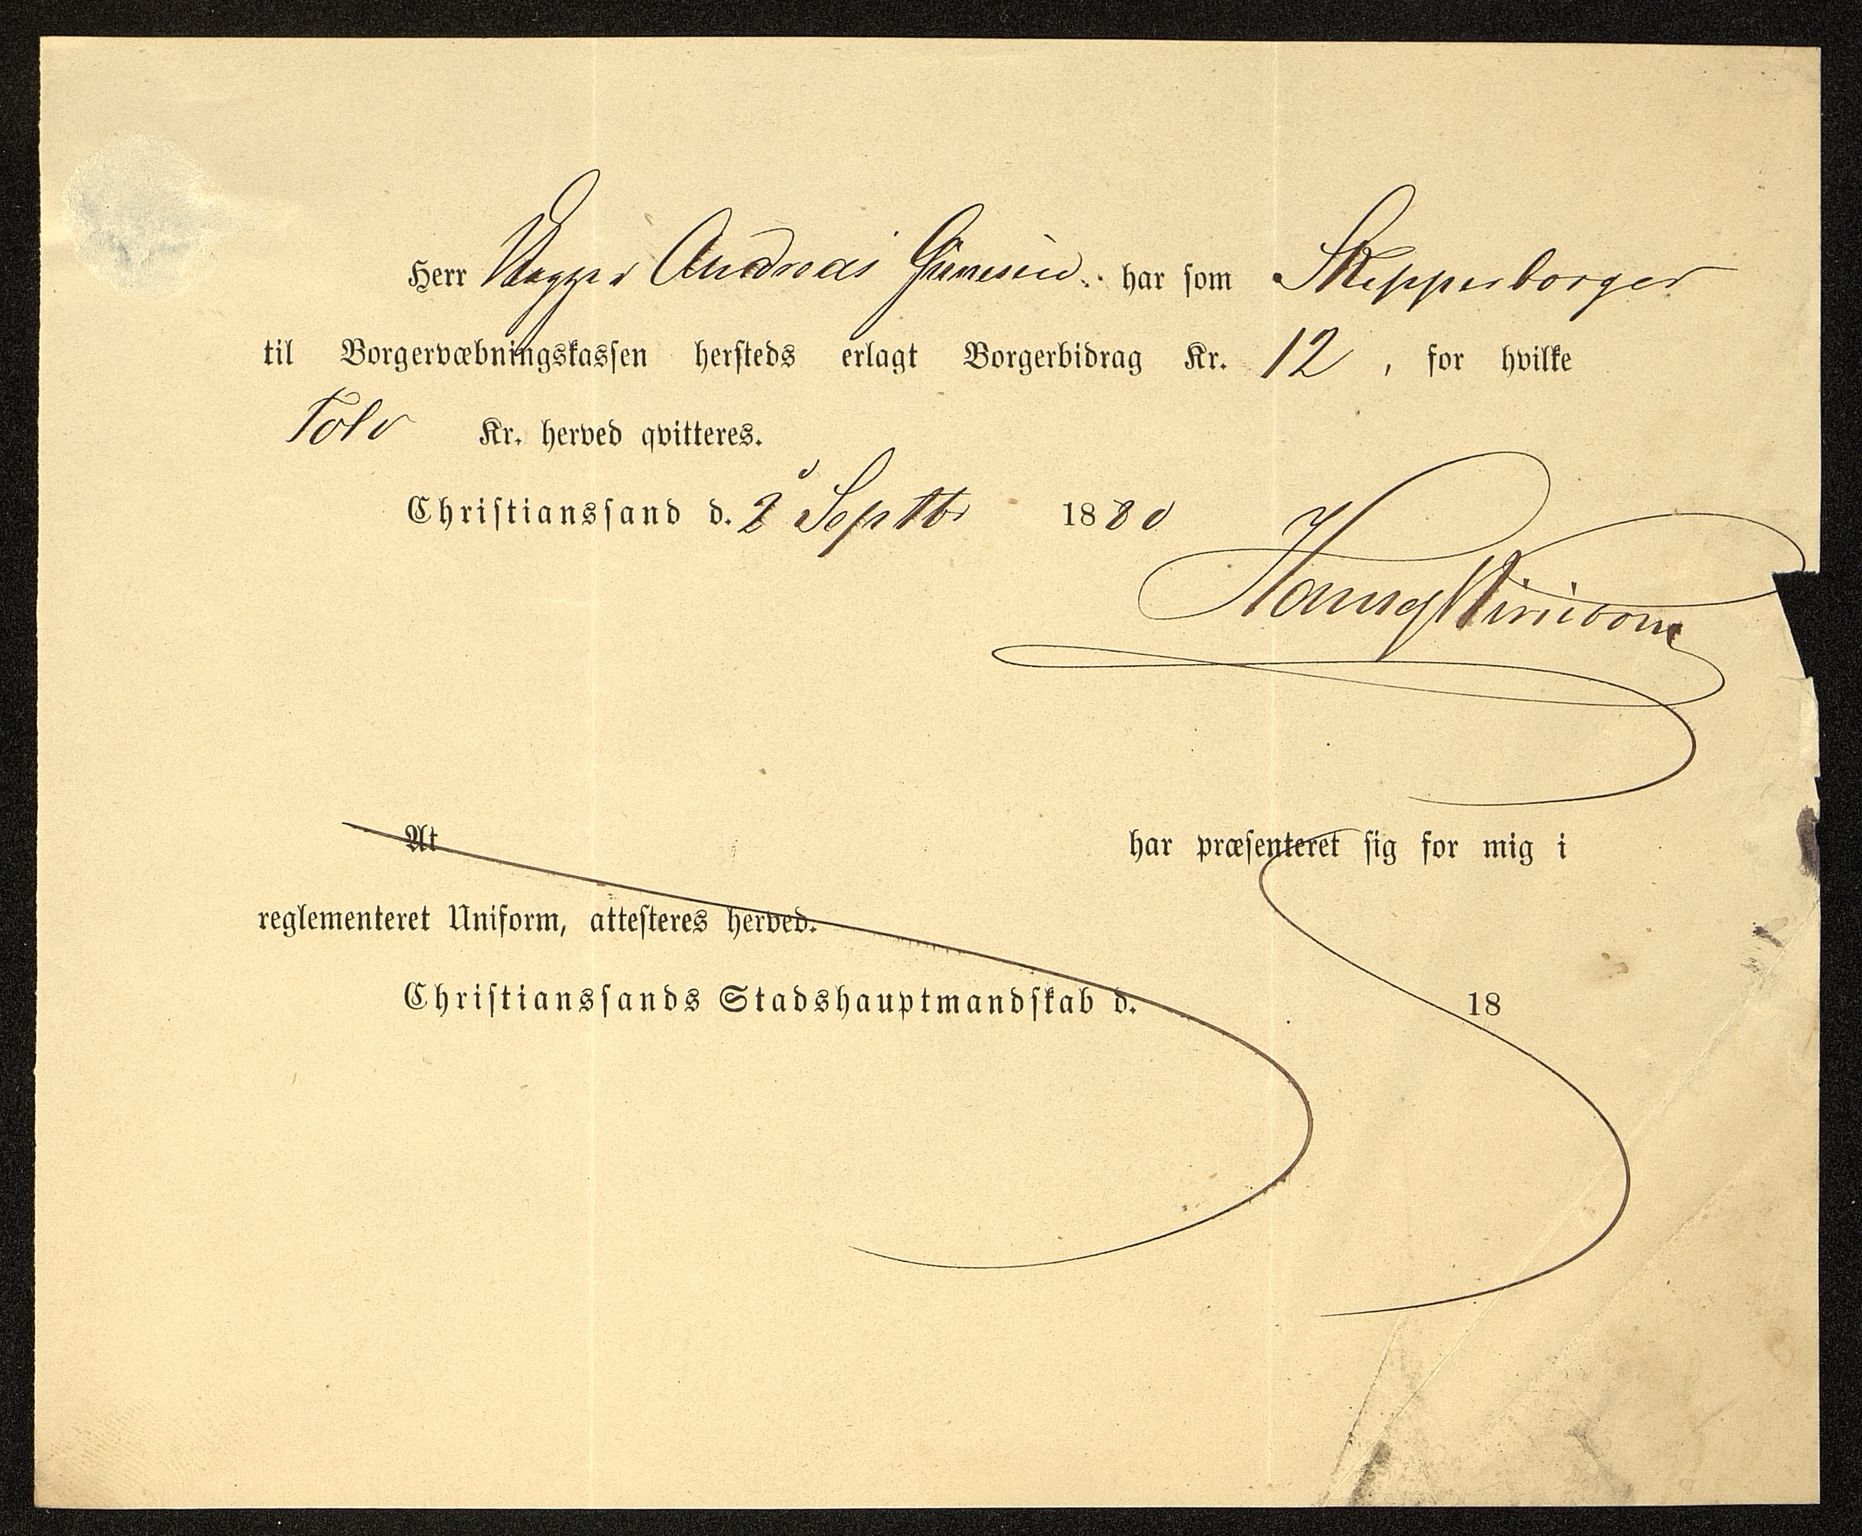 Herr Andreas har som Skipperborger
til Borgervæbningskassen hersteds erlagt Borgerbidrag Kr. 12, for hvilke
Tolv Kr. herved qvitteres.
Christianssand d. 2 Septbr 1880
At har præsenteret sig for mig i
reglementeret Uniform, attesteres herved.
Christianssands Stadshauptmandskab d. 18